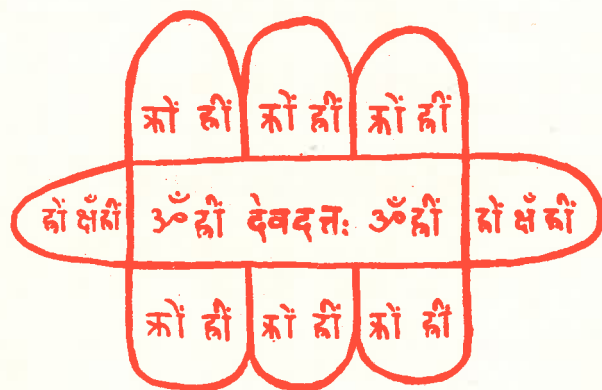 क्रों ह्रीं क्रों ह्रीं क्रों ह्रीं
ह्रों क्षँ ह्रीं ॐ ह्रीं देवदत्तः ॐ ह्रीं ह्रों क्षँ ह्रीं
क्रों ह्रीं क्रों ह्रीं क्रों ह्रीं